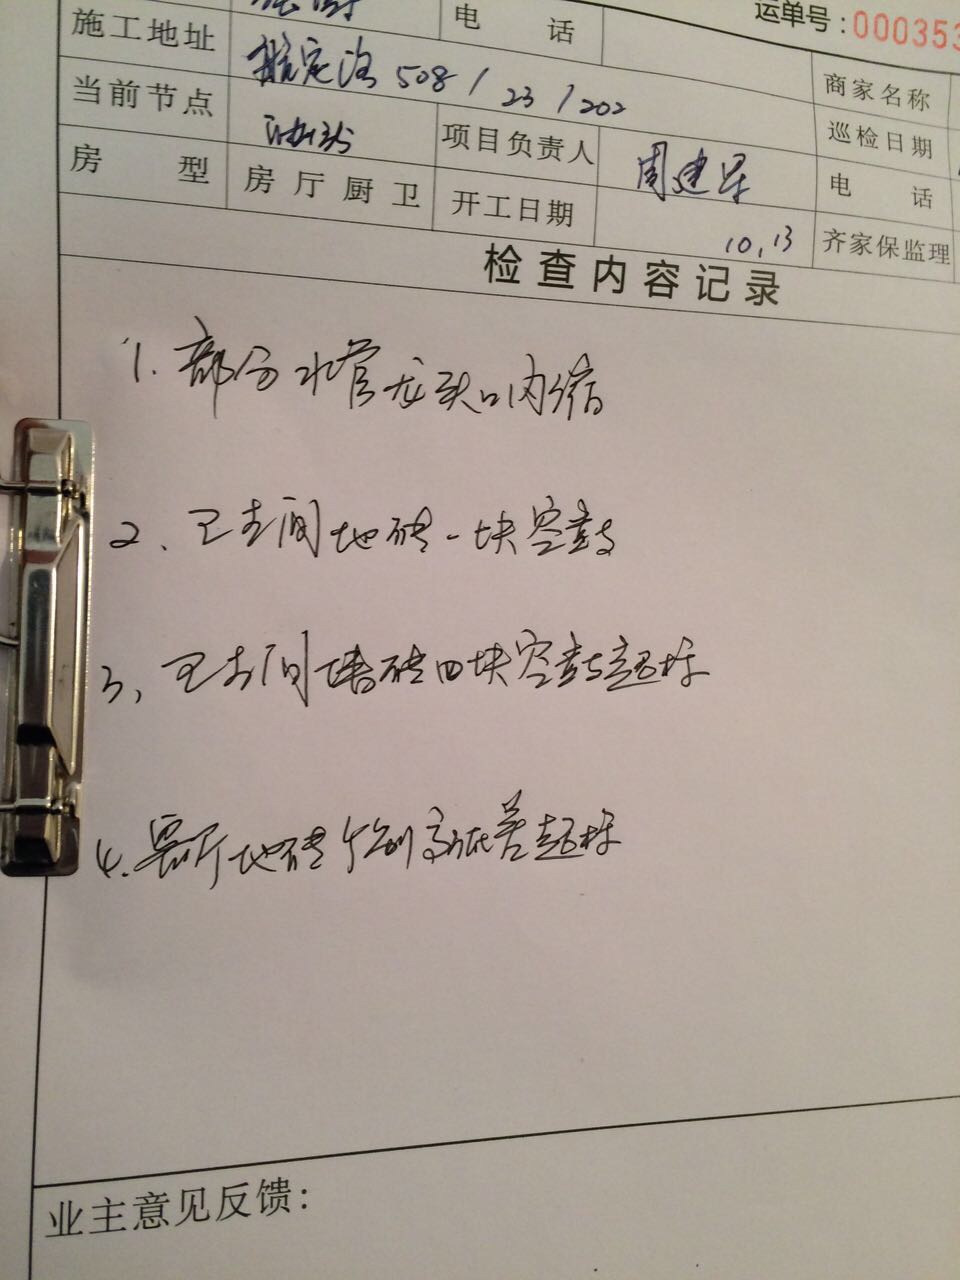 电 话
运单号:000353
施工地址 航定路 508 / 23 / 202
商家名称
当前节点 项目负责人 周建军
巡检日期
房 型 房 厅 厨 卫 开工日期 10.13
电 话
齐家保监理
检查内容记录
1. 部分水管龙头口内缩
2、卫生间地砖一块空鼓
3、卫生间墙砖四块空鼓超标
4. 客厅地砖个别高低差超标
业主意见反馈: